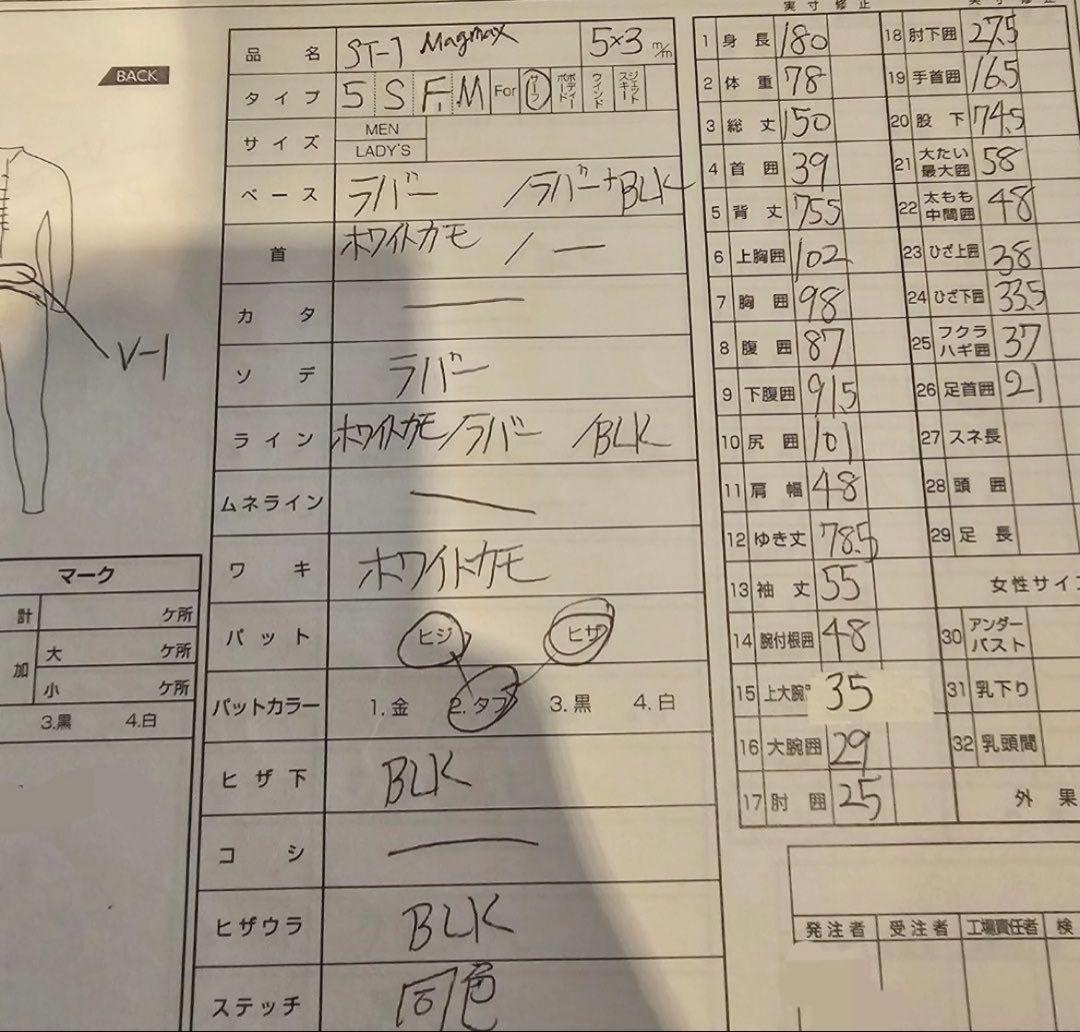 BACK
V-1
マーク
計 ケ所
加 大 ケ所
小 ケ所
3.黒 4.白
品名 ST-7 Magmax 5×3 m/m
タイプ 5 S F. M For サーフ ボディーボード ウインド ジェットスキー
サイズ MEN
LADY'S
ベース ラバー /ラバー+BLK
首 ホワイトカモ / —
カタ —
ソデ ラバー
ライン ホワイトカモ/ラバー /BLK
ムネライン —
ワキ ホワイトカモ
パット ヒジ ヒザ
パットカラー 1.金 2.タフ 3.黒 4.白
ヒザ下 BLK
コシ —
ヒザウラ BLK
ステッチ 同色
実寸 修正
1 身長 180
2 体重 78
3 総丈 150
4 首囲 39
5 背丈 75.5
6 上胸囲 102
7 胸囲 98
8 腹囲 87
9 下腹囲 91.5
10 尻囲 101
11 肩幅 48
12 ゆき丈 78.5
13 袖丈 55
14 腕付根囲 48
15 上大腕 35
16 大腕囲 29
17 肘囲 25
実寸 修正
18 肘下囲 27.5
19 手首囲 16.5
20 股下 74.5
21 大たい最大囲 58
22 太もも中間囲 48
23 ひざ上囲 38
24 ひざ下囲 33.5
25 フクラハギ囲 37
26 足首囲 21
27 スネ長
28 頭囲
29 足長
女性サイズ
30 アンダーバスト
31 乳下り
32 乳頭間
外果
発注者 受注者 工場責任者 検